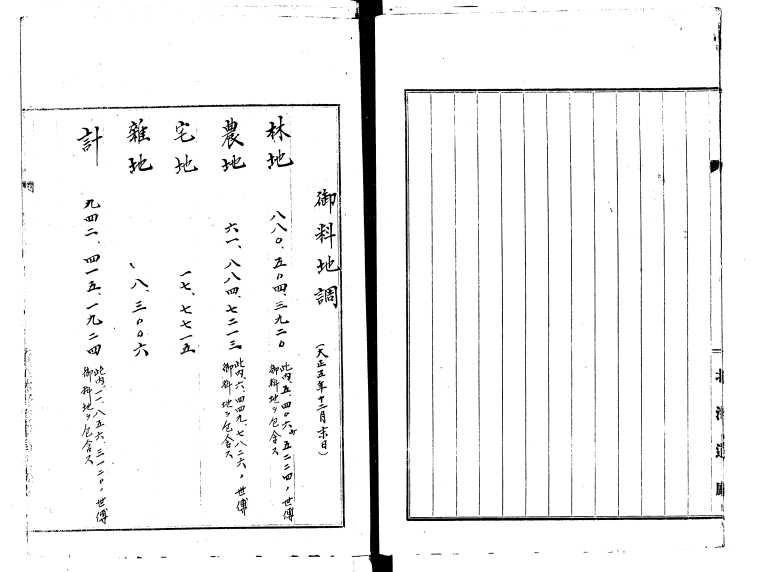 北海道廳
御料地調
(大正五年十二月末日)
林地 八八〇、五〇四、三九二〇
此内、五、四〇六、五二二四、世傳
御料地ヲ包含ス
農地 六一、八八四、七二一三
此内、六、四四九、七八二六、世傳
御料地ヲ包含ス
宅地 一七、七七一五
雜地 八、三〇〇六
計 九四二、四一五、一九二四
此内、一、八五六、三一二〇、世傳
御料地ヲ包含ス